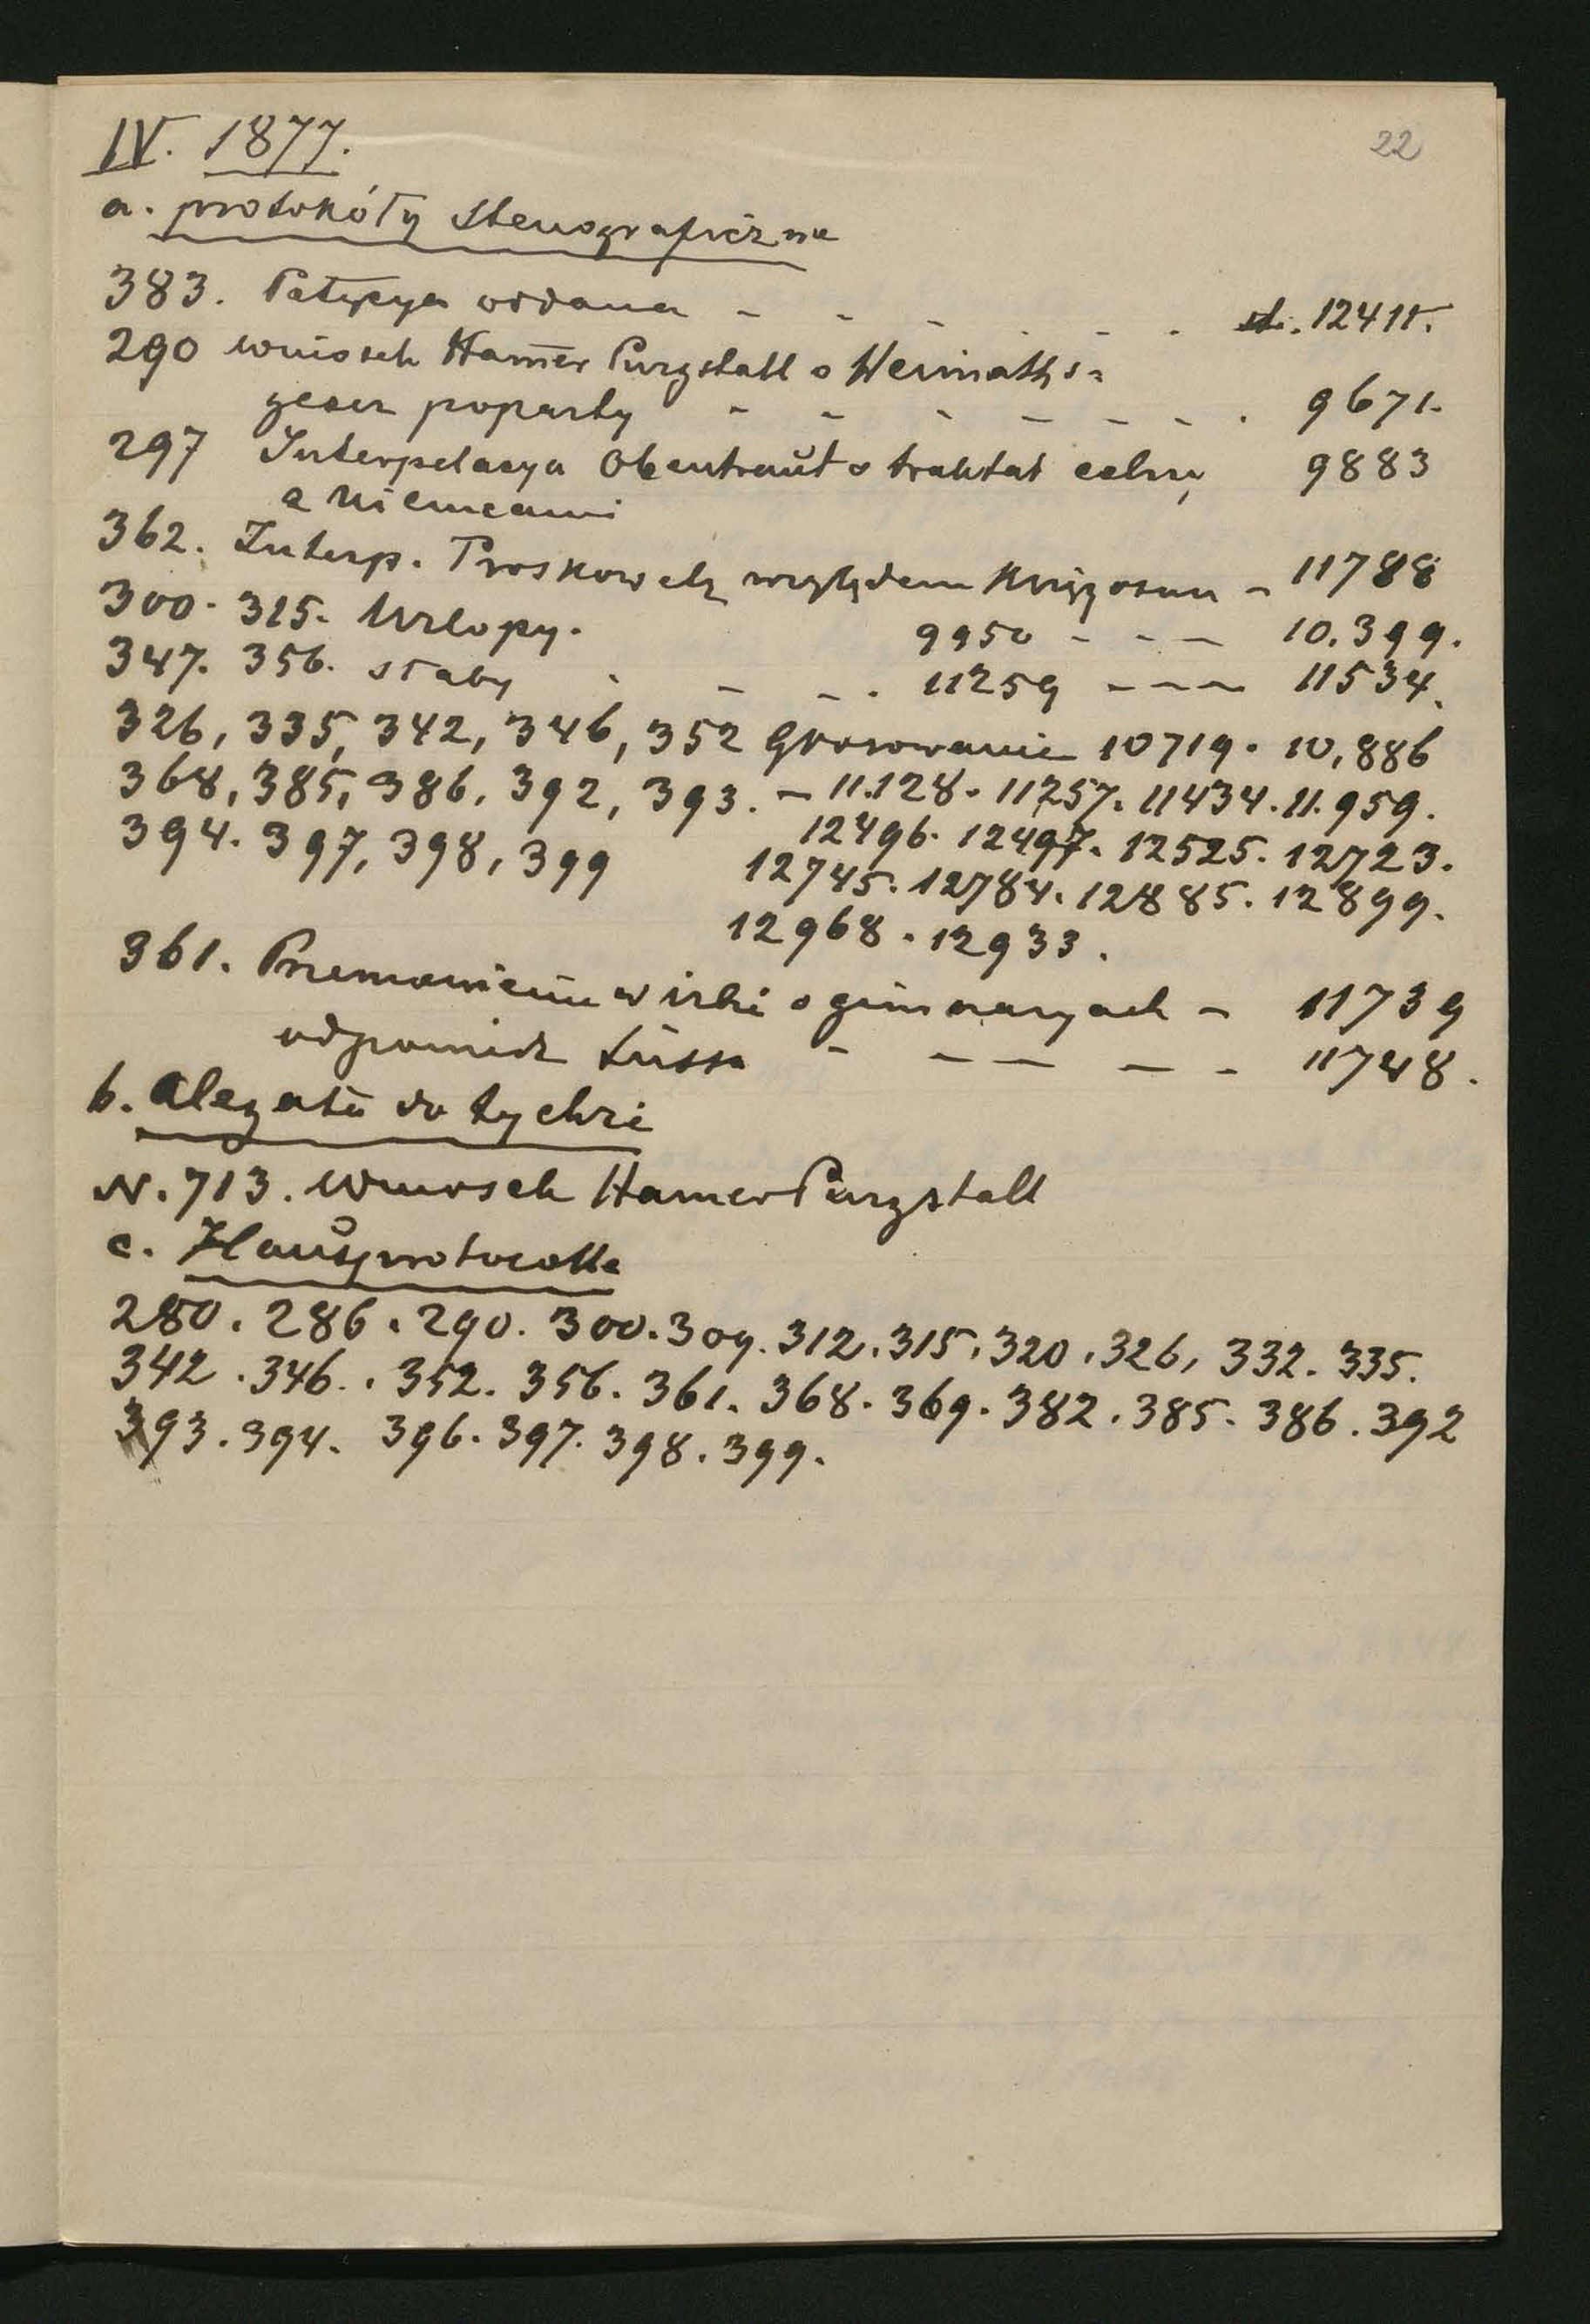 22
IV. 1877.
a. protokóły stenograficzne
383. Petycya oddana - - - - - - str. 12411.
290 wniosek Hamer Purgstall o Heimaths=
gesez poparty - - - - - - . 9671.
297 Interpelacya Obentraut o traktat celny 9883
z Niemcami
362. Interp. Proskowetz względem - 11788
300. 315. Urlopy. 9950 - - - 10.399.
347. 356. słaby . - - . 11259 - - - 11534.
326, 335, 342, 346, 352 Głosowanie 10719. 10,886
368, 385, 386, 392, 393. - 11.128. 11257. 11434. 11.959.
394. 397, 398, 399 12496. 12497. 12525. 12723.
12745. 12784. 12885. 12899.
12968. 12933.
361. Przemówienie w izbie o gimnazyach - 11739
odpowiedź Süssa - - - - - 11748.
b. Alegata do tychże
N. 713. Wniosek Hamer Purgstall
c. Hausprotocolle
280. 286. 290. 300. 309. 312. 315. 320. 326, 332. 335.
342. 346. . 352. 356. 361. 368. 369. 382. 385. 386. 392
393. 394. 396. 397. 398. 399.